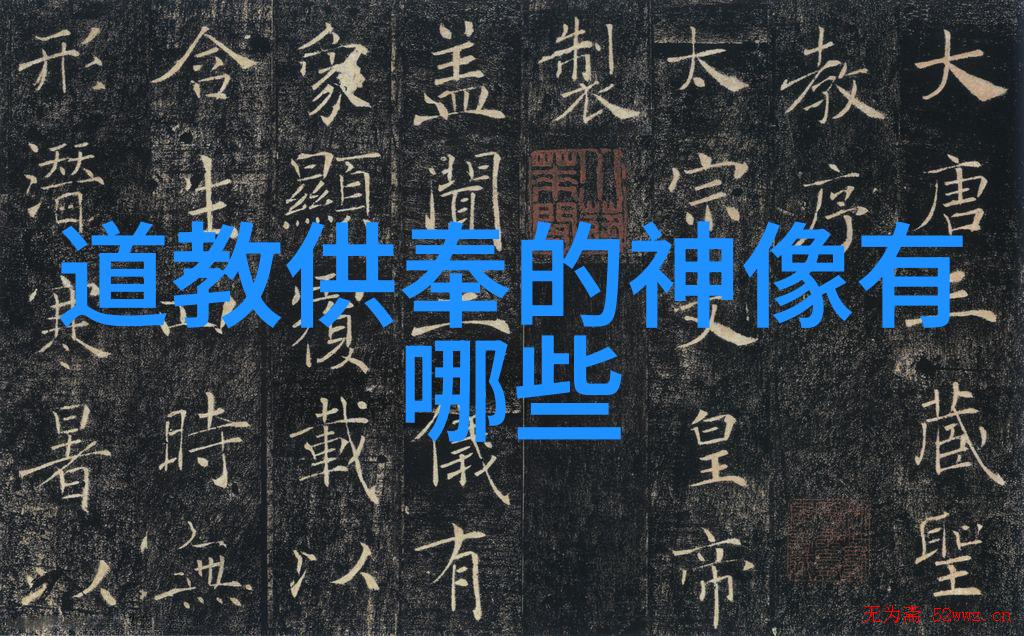 道教供奉的神像有
哪些
大唐三蔵聖
教序
太宗文皇帝
製
盖聞二儀有
象顯覆載以
含生四時無
形潛寒暑以
无为斋 52wwz.cn